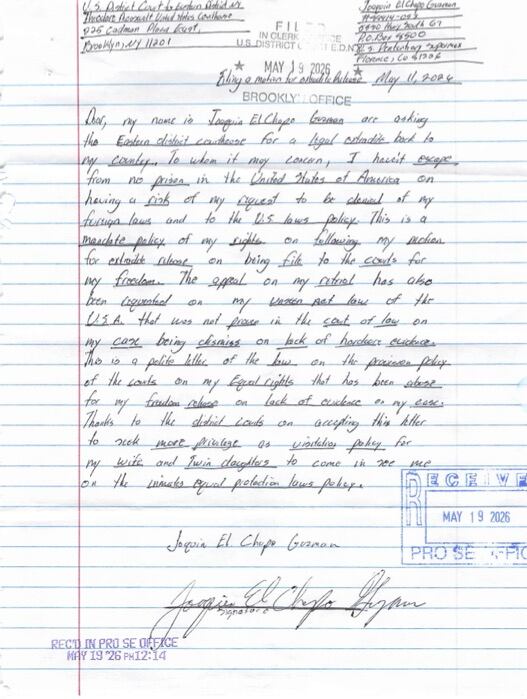 U.S. District Court Eastern District NY
Theodore Roosevelt United States Courthouse
225 Cadman Plaza East,
Brooklyn, NY 11201
FILED
IN CLERK'S OFFICE
U.S. DISTRICT COURT E.D.N.Y.
★ MAY 19 2026 ★
BROOKLYN OFFICE
Joaquin El Chapo Guzman
Hwy South 67
P.O. Box 8500
U.S. Penitentiary
Florence, Co 81226
Filing a motion for extradite Release May 11, 2026
Dear, my name is Joaquin El Chapo Guzman are asking
the Eastern district courthouse for a legal extradite back to
my country. To whom it may concern, I haven't escape
from no prison in the United States of America on
having a risk of my request to be denial of my
foreign laws and to the U.S. laws policy. This is a
mandate policy of my rights on following my motion
for extradite release on being file to the courts for
my freedom. The appeal on my retrial has also
been requested on my act law of the
U.S.A. that was not proven in the court of law on
my case being dismiss on lack of hardcore evidence.
This is a polite letter of the law on the provision policy
of the courts on my Equal rights that has been abuse
for my freedom release on lack of evidence on my case.
Thanks to the district courts on accepting this letter
to seek more privilege as visitation policy for
my wife and Twin daughters to come in see me
on the inmates equal protection laws policy.
RECEIVE
MAY 19 2026
PRO SE OFFIC
Joaquin El Chapo Guzman
Joaquin El Chapo Guzman
Signature
REC'D IN PRO SE OFFICE
MAY 19 '26 PM12:14